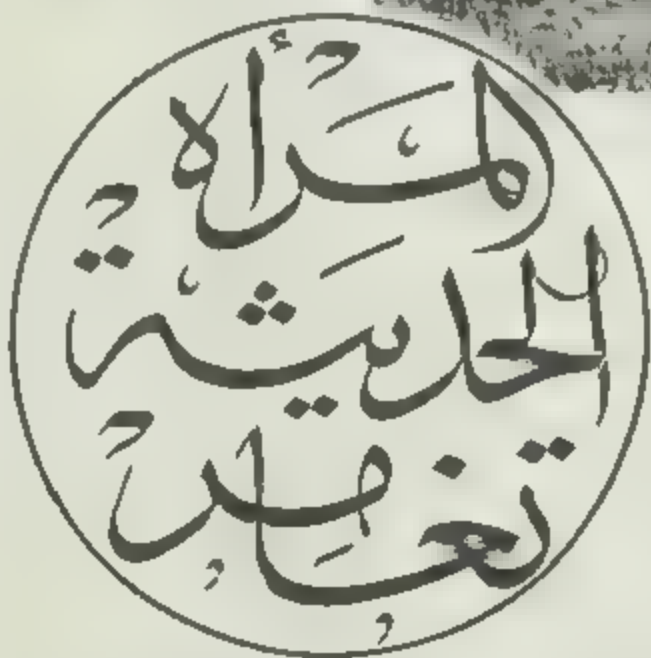 المرأة
الحديثة
تغامر